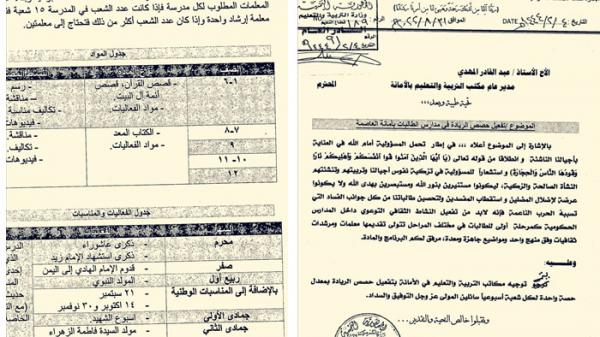 الأخ الأستاذ / عبد القادر المهدي
مدير عام مكتب التربية والتعليم بالأمانة المحترم
تحية طيبة وبعد,,,
الموضوع / تفعيل حصص الريادة في مدارس الطالبات بأمانة العاصمة
بالإشارة إلى الموضوع أعلاه ,,, في إطار تحمل المسؤولية أمام الله في العناية
بأجيالنا الناشئة و انطلاقا من قوله تعالى (يا أيها الذين آمنوا قوا أنفسكم وأهليكم نارًا
وقودها الناس والحجارة) و استشعاراً للمسؤولية في تزكية نفوس أجيالنا وتربيتهم وتنشئتهم
النشأة الصالحة والزكية, ليكونوا مستنيرين بنور الله ومستبصرين بهدى الله ولا يكونوا
عرضة لإضلال المضلين و استقطاب المفسدين وتحصين طالباتنا من كل جوانب الفساد التي
تسببه الحرب الناعمة فإنه لابد من تفعيل النشاط الثقافي التوعوي داخل المدارس
الحكومية كمرحلة أولى للطالبات في مختلف المراحل تتولى تقديمها معلمات ومرشدات
ثقافيات وفق منهج واحد ومواضيع جاهزة ومعدة, مرفق لكم البرنامج والمادة.
وعليه :
توجيه مكاتب التربية والتعليم في الأمانة بتفعيل حصص الريادة بمعدل
حصة واحدة لكل شعبة أسبوعياً سائلين المولى عز وجل التوفيق والسداد.
وتقبلوا خالص التحية والتقدير,,,
المعلمات المطلوب لكل مدرسة فإذا كانت عدد الشعب في المدرسة ١٥ شعبة
معلمة إرشاد واحدة وإذا كان عدد الشعب أكثر من ذلك فتحتاج إلى معلمتين.
جدول المواد
الصف
١-٦
- قصص القرآن, قصص
أئمة آل البيت.
- مواد الفعاليات.
- رسم
- مناقشة
- تكاليف مناسبة
- فيديوهات
٧-٨
٩
١٠-١١
١٢
- الكتاب المعد
- مواد الفعاليات.
- مناقشة
- تكاليف.
- فيديوهات
جدول الفعاليات والمناسبات
الشهر
محرم
- ذكرى عاشوراء
- ذكرى استشهاد الإمام زيد
صفر
- قدوم الإمام الهادي إلى اليمن
ربيع أول
- المولد النبوي
بالإضافة إلى المناسبات الوطنية
- ٢١ سبتمبر
- ١٤ أكتوبر و٣٠ نوفمبر
جمادى الأولى
- أسبوع الشهيد
جمادى الثاني
- مولد السيدة فاطمة الزهراء